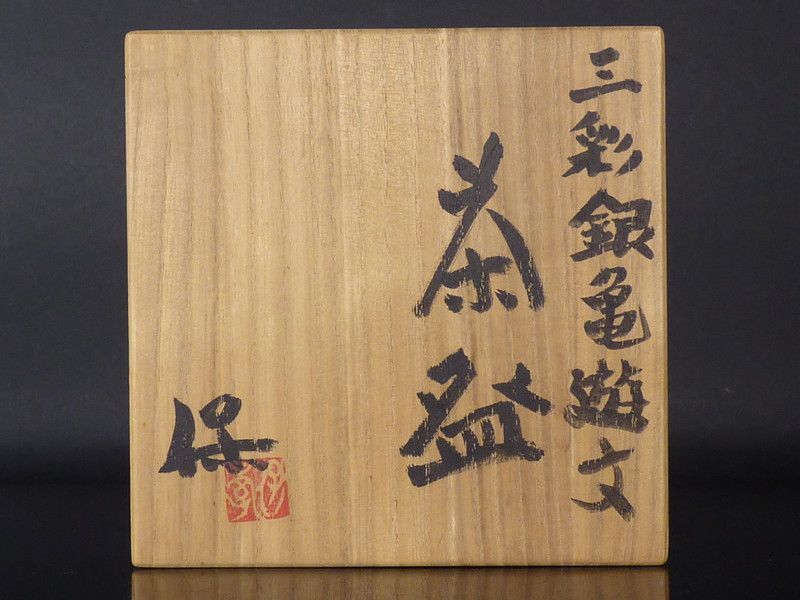 三彩銀亀遊文
茶盌
保